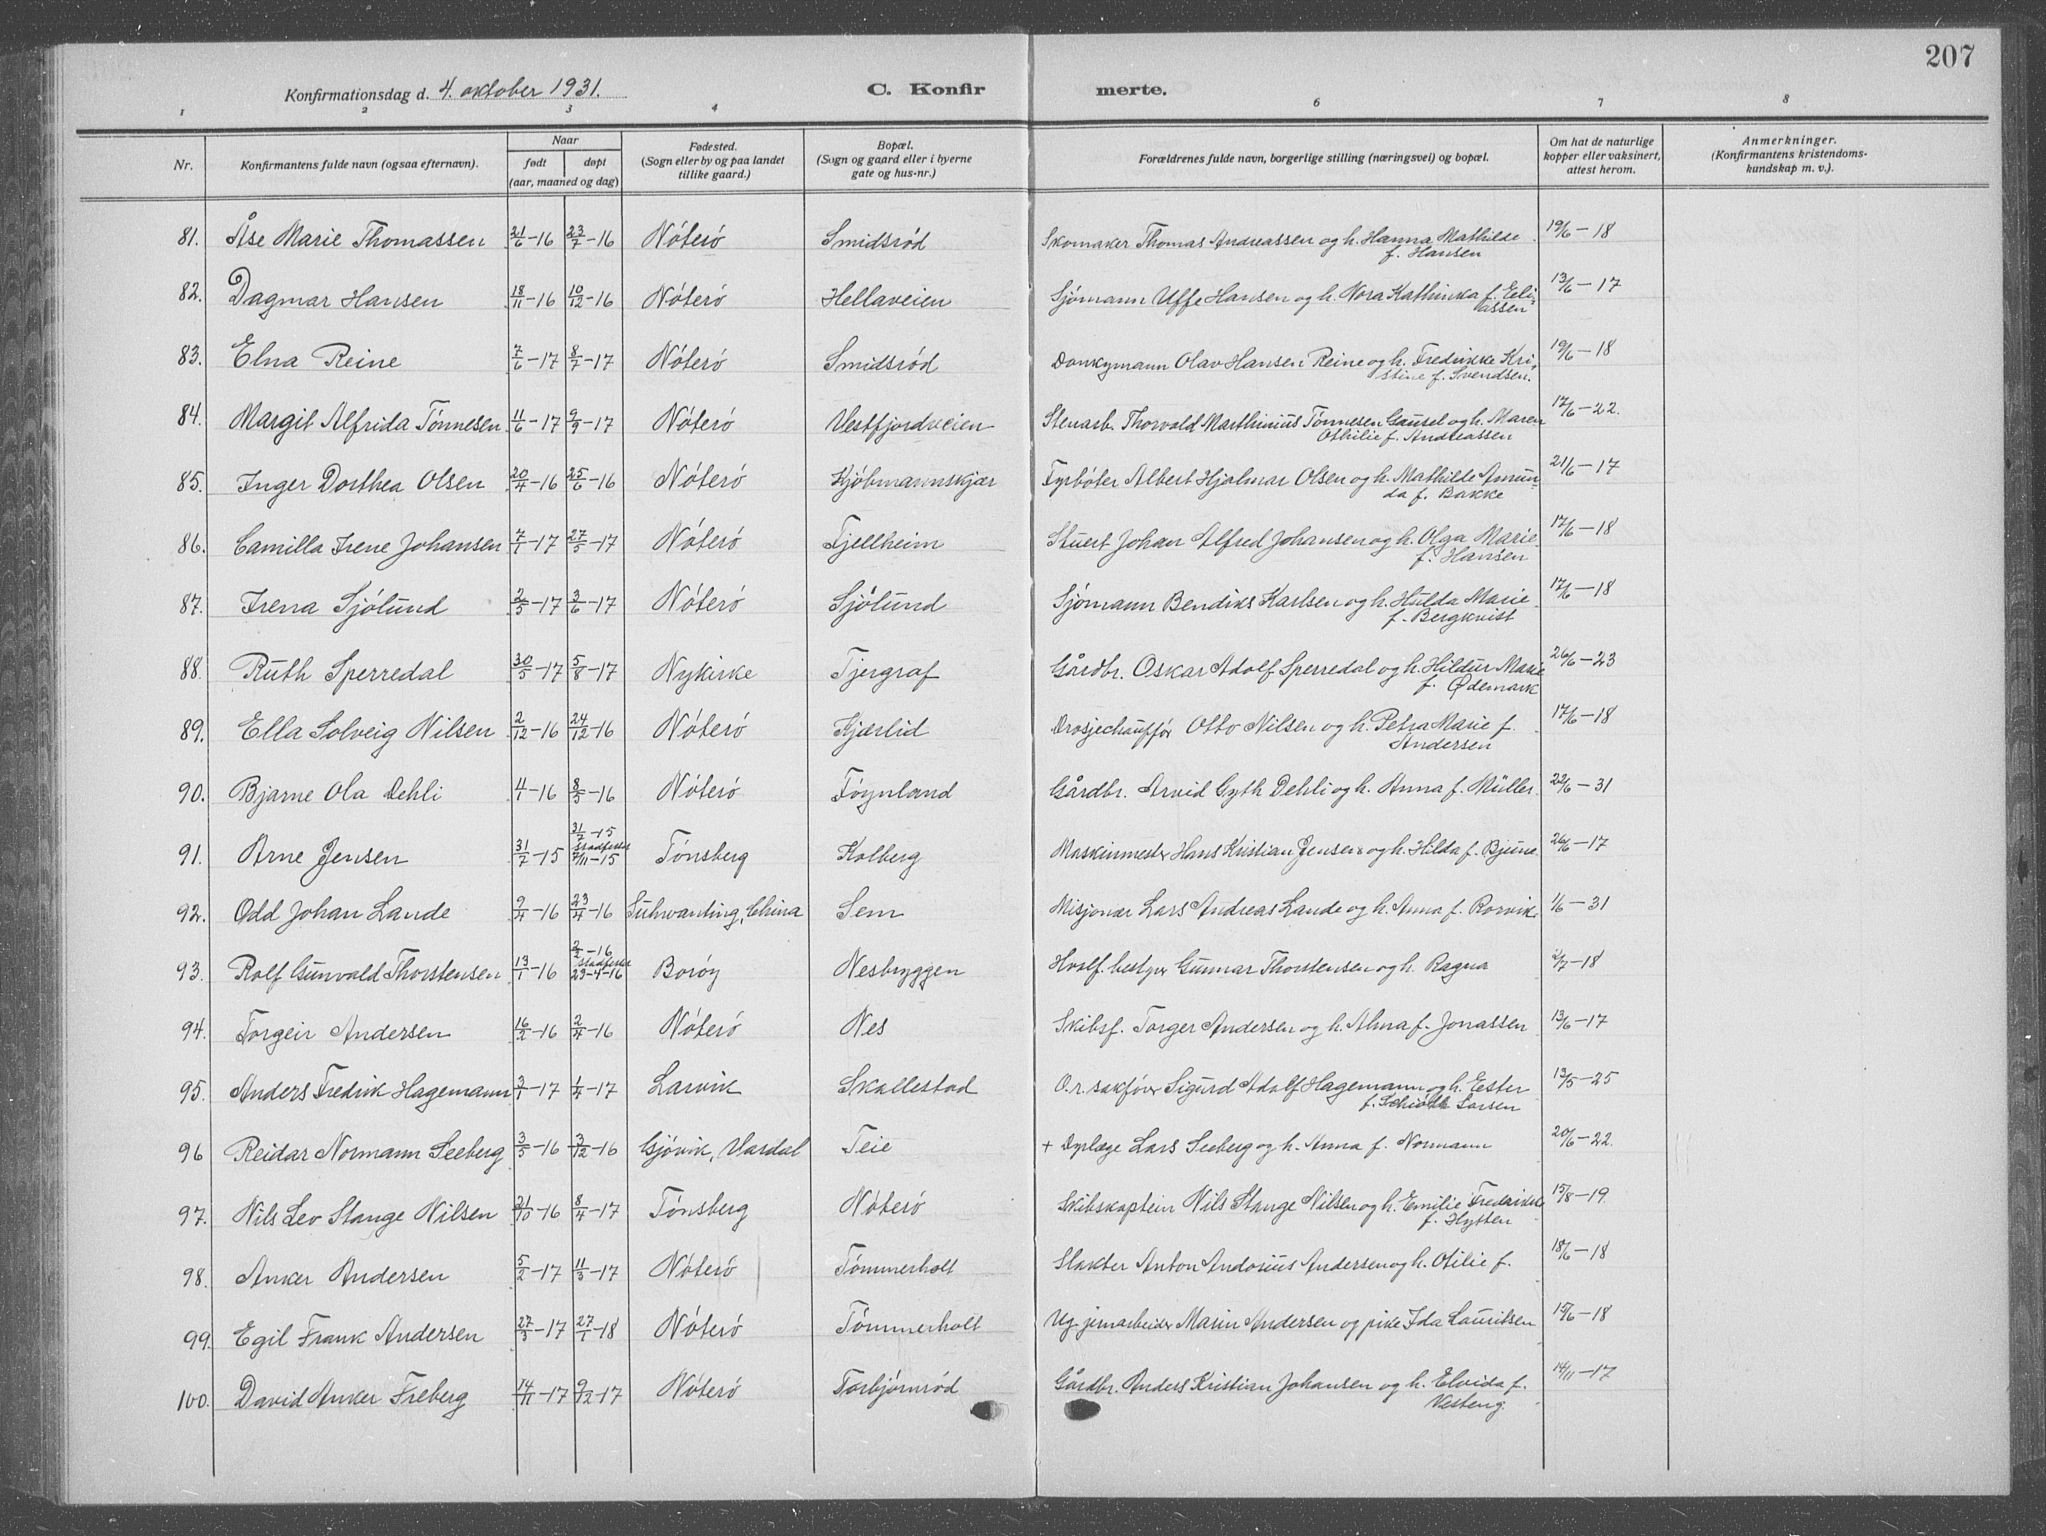 207
Konfirmationsdag d. 4. oktober 1931. C. Konfirmerte.
1 2 3 4 5 6 7 8
Nr. Konfirmantens fulde navn (ogsaa efternavn). Naar født døpt (aar, maaned og dag) Fødested. (Sogn eller by og paa landet tillike gaard.) Bopæl. (Sogn og gaard eller i byerne gate og hus-nr.) Forældrenes fulde navn, borgerlige stilling (næringsvei) og bopæl. Om hat de naturlige kopper eller vaksinert, attest herom. Anmerkninger. (Konfirmantens kristendomskundskap m. v.).
81. Åse Marie Thomassen 21/6-16 23/7-16 Nóteró Smidsród Skomaker Thomas Andreassen og h. Hanna Mathilde 19/6-18
f. Hansen
82. Dagmar Hansen 18/11-16 10/12-16 Nóteró Hellaveien Sjømann Uffe Hansen og h. Nora Kathinka f. Eli- 13/6-17
assen
83. Elna Reine 7/6-17 8/7-17 Nóteró Smidsród Donkymann Olav Hansen Reine og h. Fredrikke Kri- 19/6-18
stine f. Svendsen.
84. Margit Alfrida Tønnesen 11/6-17 9/9-17 Nóteró Vestfjordveien Stenarb. Thorvald Marthinius Tønnesen Gausel og h. Maren 17/6-22.
Othilie f. Andreassen
85. Inger Dorthea Olsen 20/4-16 25/6-16 Nóteró Kjóbmannskjær Fyrbóter Albert Hjalmar Olsen og h. Mathilde Amun- 21/6-17
da f. Bakke
86. Camilla Irene Johansen 7/1-17 27/5-17 Nóteró Fjellheim Stuert Johan Alfred Johansen og h. Olga Marie 17/6-18
f. Hansen
87. Irena Sjólund 2/5-17 3/6-17 Nóteró Sjólund Sjómann Bendiks Karlsen og h. Hulda Marie 17/6-18
f. Bergkvist
88. Ruth Sperredal 30/5-17 5/8-17 Nykirke Tjergraf Gårdbr. Oskar Adolf Sperredal og h. Hildur Marie 26/6-23
f. Ødemark
89. Ella Solveig Nilsen 2/12-16 24/12-16 Nóteró Kjærlid Drosjechaufför Otto Nilsen og h. Petra Marie f. 17/6-18
Andersen
90. Bjarne Ola Dehli 4/1-16 8/5-16 Nóteró Fóynland Gårdbr. Arvid Gyth Dehli og h. Anna f. Müller 22/6-31
91. Arne Jensen 31/7-15 31/7-15 stadfestet 7/11-15 Tónsberg Kolberg Maskinmester Hans Kristian Jensen og h. Hilda f. Bjune 26/6-17
92. Odd Johan Lande 9/4-16 23/4-16 Suhwanting, China Sem Misjonær Lars Andreas Lande og h. Anna f. Rorvik 1/6-31
93. Rolf Gunvald Thorstensen 13/1-16 2/2-16 stadfestet 23-4-16 Boróy Nesbryggen Hvalf. bestyrer Gunnar Thorstensen og h. Ragna 2/7-18
94. Torgeir Andersen 16/2-16 2/4-16 Nóteró Nes Skibsf. Torger Andersen og h. Alma f. Jonassen 13/6-17
95. Anders Fredrik Hagemann 2/1-17 1/4-17 Larvik Skallestad O.r. sakfører Sigurd Adolf Hagemann og h. Ester 13/5-25
f. Schióth Larsen
96 Reidar Normann Seeberg 3/5-16 3/12-16 Gjóvik, Vardal Teie + Dyrlæge Lars Seeberg og h. Anna f. Normann 20/6-22.
97. Nils Lev Stange Nilsen 21/10-16 8/4-17 Tónsberg Nóteró Skibskaptein Nils Stange Nilsen og h. Emilie Fredrikke 15/8-19
f. Hytten
98. Anker Andersen 5/2-17 11/3-17 Nóteró Tómmerholt Slakter Anton Andorius Andersen og h. Otilie f. 18/6-18
99. Egil Frank Andersen 27/3-17 27/1-18 Nóteró Tómmerholt Ug. jernarbeider Marin Andersen og pike Ida Lauritsen 15/6-18
100. David Anker Freberg 14/11-17 9/12-17 Nóteró Torbjórnród Gårdbr. Anders Kristian Johansen og h. Elvida f. 14/11-17
Vesteng.